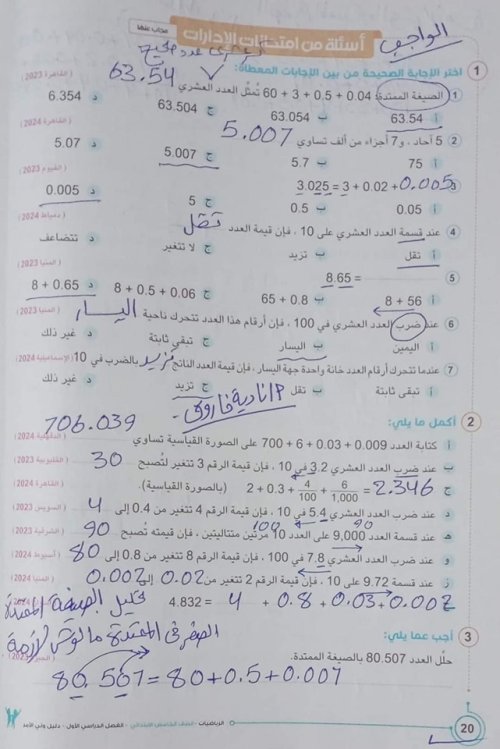 الواجب
أسئلة من امتحانات الإدارات
مجاب عنها
1 اختر الإجابة الصحيحة من بين الإجابات المعطاة:
63.54
1 الصيغة الممتدة: 0.04 + 0.5 + 3 + 60 تُمثل العدد العشري (القاهرة 2023)
أ 63.54 ب 63.054 ج 63.504 د 6.354
5.007
2 5 آحاد ، و7 أجزاء من ألف تساوي (القاهرة 2024)
أ 75 ب 5.7 ج 5.007 د 5.07
3.025 = 3 + 0.02 + 0.005 (الفيوم 2023)
أ 0.05 ب 0.5 ج 5 د 0.005
4 عند قسمة العدد العشري على 10 ، فإن قيمة العدد تقل (دمياط 2024)
أ تقل ب تزيد ج لا تتغير د تتضاعف
5 8.65 = (المنيا 2023)
أ 8 + 56 ب 65 + 0.8 ج 8 + 0.5 + 0.06 د 8 + 0.65
6 عند ضرب العدد العشري في 100 ، فإن أرقام هذا العدد تتحرك ناحية اليسار (المنيا 2023)
أ اليمين ب اليسار ج تبقى ثابتة د غير ذلك
7 عندما تتحرك أرقام العدد خانة واحدة جهة اليسار، فإن قيمة العدد الناتج تزيد بالضرب في 10 (الإسماعيلية 2024)
أ تبقى ثابتة ب تقل ج تزيد د غير ذلك
نادية فاروق
2 أكمل ما يلي:
706.039
أ كتابة العدد 0.009 + 0.03 + 6 + 700 على الصورة القياسية تساوي (الدقهلية 2024)
ب عند ضرب العدد العشري 3.2 في 10 ، فإن قيمة الرقم 3 تتغير لتصبح 30 (القليوبية 2023)
ج 2 + 0.3 + 4/100 + 6/1,000 = 2.346 (بالصورة القياسية). (القاهرة 2024)
د عند ضرب العدد العشري 5.4 في 10 ، فإن قيمة الرقم 4 تتغير من 0.4 إلى 4 (السويس 2023)
100 90
هـ عند قسمة العدد 9,000 على العدد 10 مرتين متتاليتين، فإن قيمته تصبح 90 (الشرقية 2023)
و عند ضرب العدد العشري 7.8 في 100 ، فإن قيمة الرقم 8 تتغير من 0.8 إلى 80 (أسيوط 2024)
ز عند قسمة 9.72 على 10 ، فإن قيمة الرقم 2 تتغير من 0.02 إلى 0.002 (المنيا 2024)
4.832 = 4 + 0.8 + 0.03 + 0.002
تحليل الصيغة الممتدة
الصفر فى الممتدة مالوش لازمة
3 أجب عما يلي:
حلل العدد 80.507 بالصيغة الممتدة.
80.507 = 80 + 0.5 + 0.007
الرياضيات - الصف الخامس الابتدائي - الفصل الدراسي الأول - دليل ولي الأمر
20